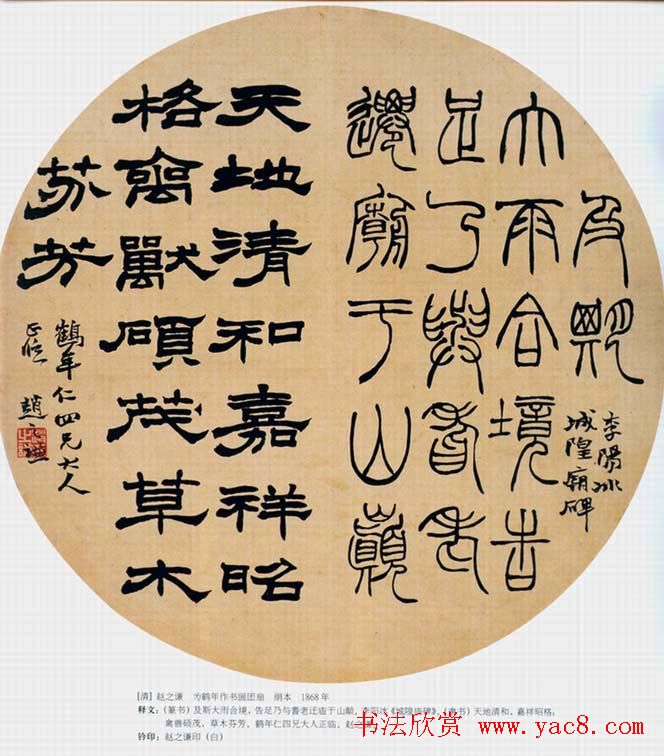 及期
大雨合境告
足乃與耆老
遷廟于山巔
李陽冰
城隍廟碑
天地清和嘉祥昭
格禽獸碩茂草木
芬芳
鶴年仁四兄大人
正臨 趙之謙
[清] 赵之谦 为鹤年作书画团扇 绢本 1868年
释文：(篆书)及斯大雨合境，告足乃与耆老迁庙于山巅。李阳冰《城隍庙碑》。(隶书)天地清和，嘉祥昭格，
禽兽硕茂，草木芬芳。鹤年仁四兄大人正临，赵之谦
钤印：赵之谦印(白)
书法欣赏
www.yac8.com